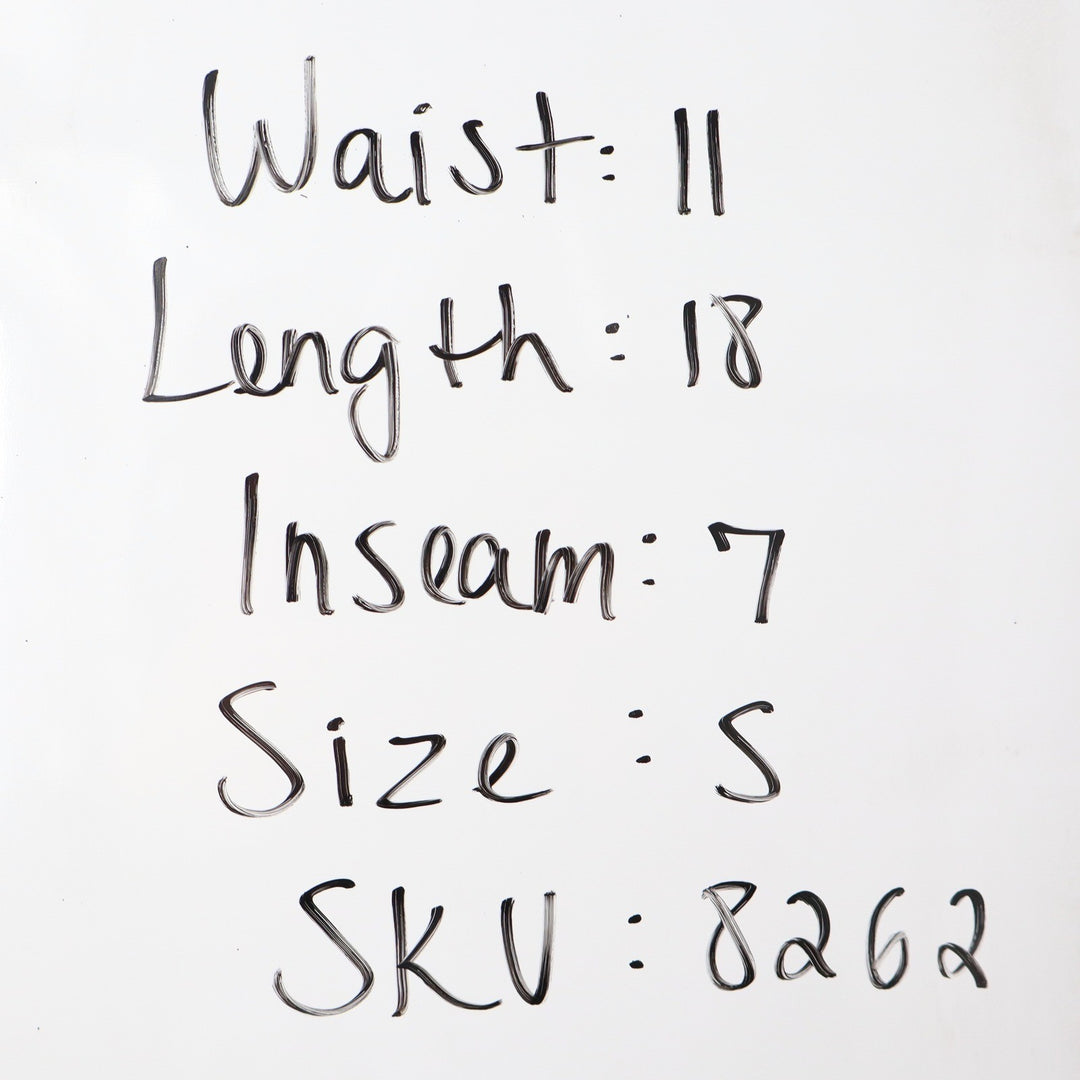 Waist: 11
Length: 18
Inseam: 7
Size: S
SKU: 8262